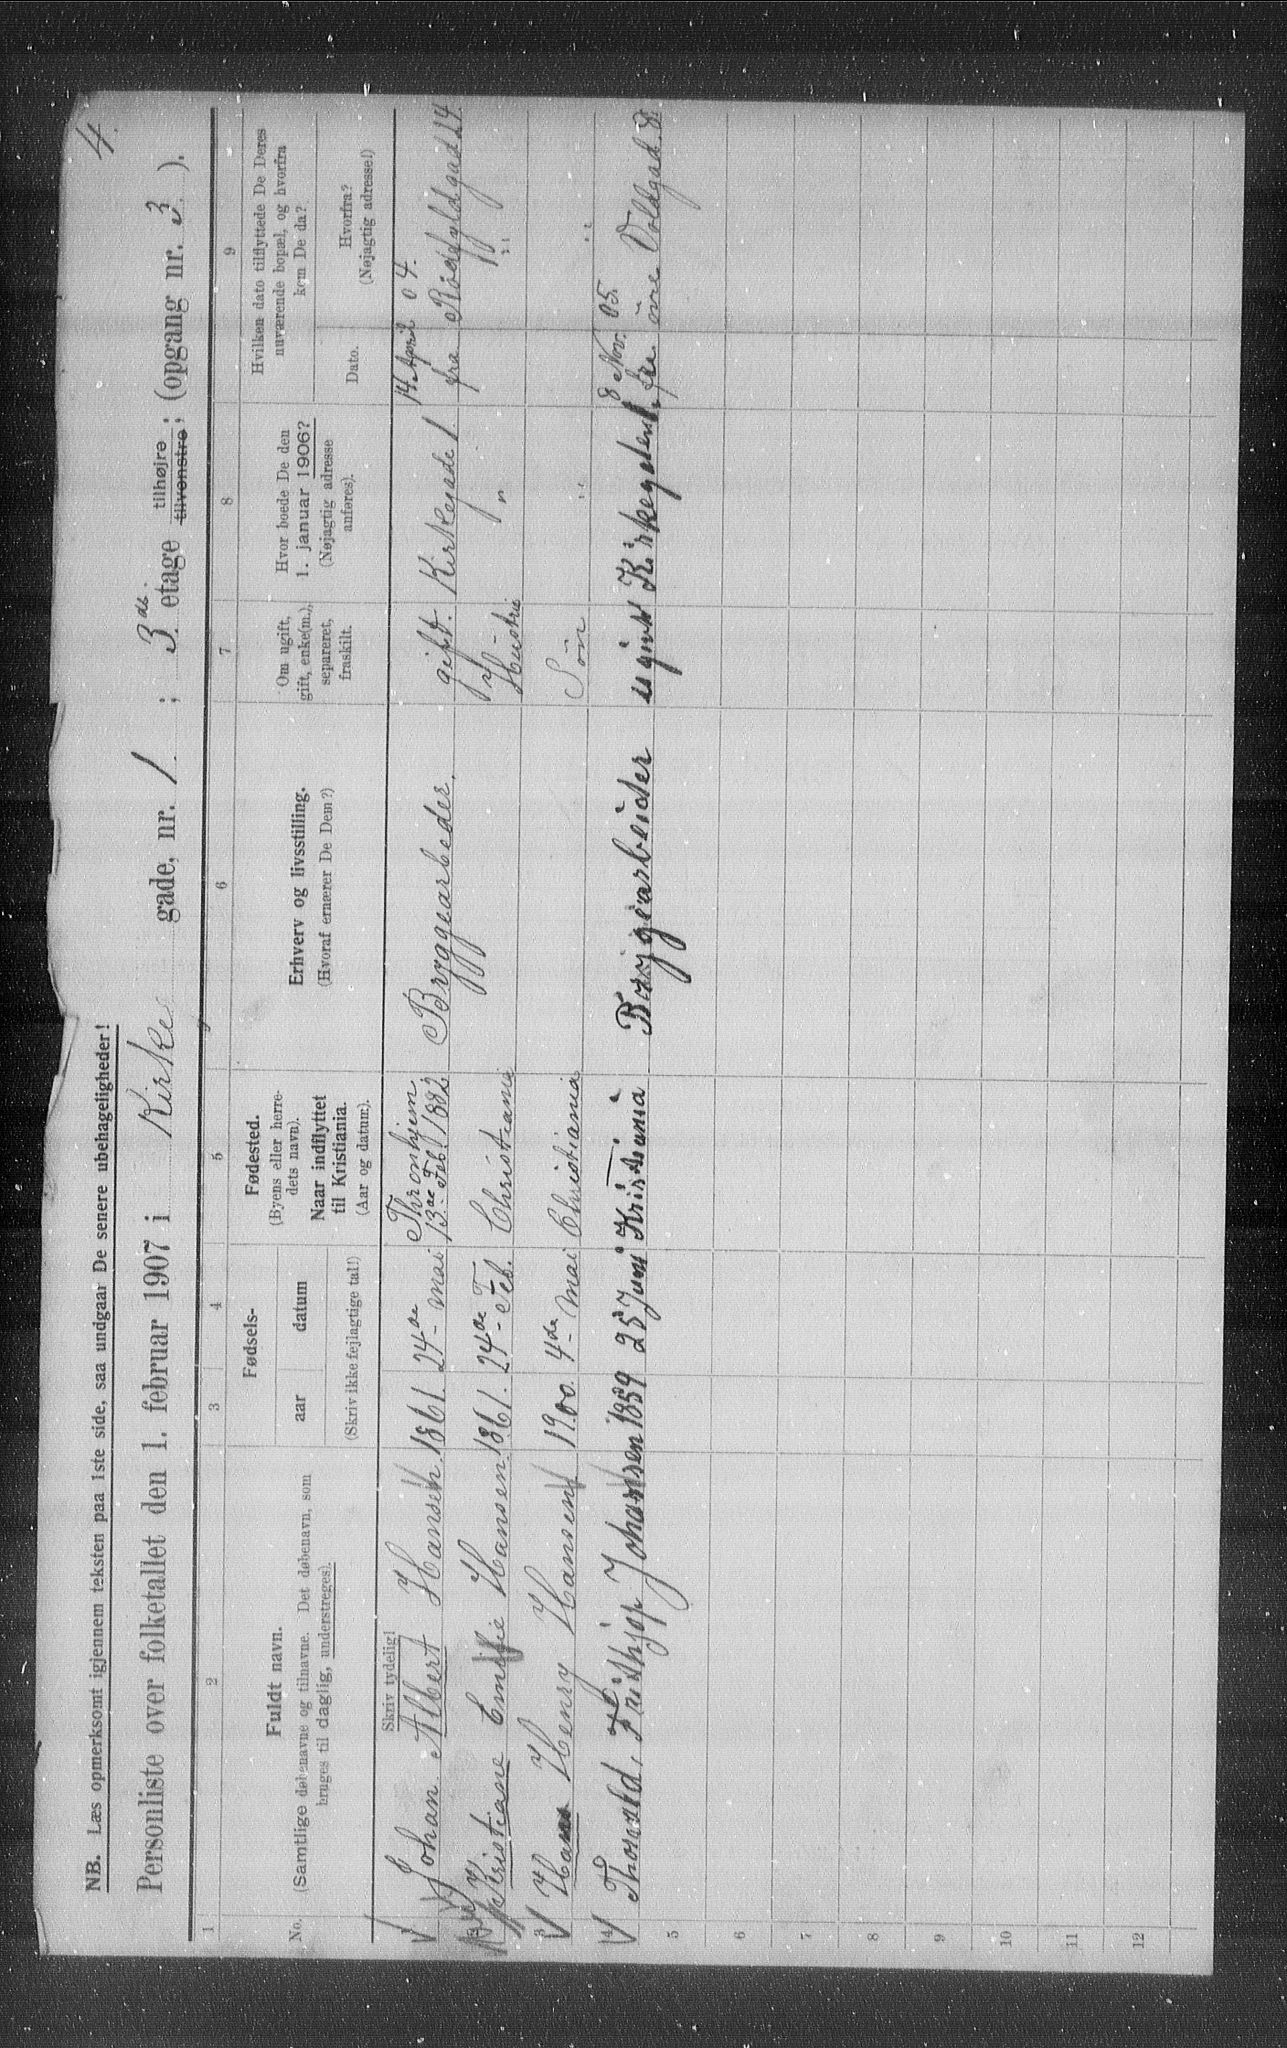 4.
NB. Læs opmerksomt igjennem teksten paa 1ste side, saa undgaar De senere ubehageligheder!
Personliste over folketallet den 1. februar 1907 i Kirke gade, nr. 1 ; 3 de etage tilhøjre tilvenstre ; (opgang nr. 3 ).
1 2 3 4 5 6 7 8 9
No.
Fuldt navn.
(Samtlige døbenavne og tilnavne. Det døbenavn, som
bruges til daglig, understreges).
Fødsels-
aar datum
(Skriv ikke fejlagtige tal!)
Fødested.
(Byens eller herre-
dets navn).
Naar indflyttet
til Kristiania.
(Aar og datum).
Erhverv og livsstilling.
(Hvoraf ernærer De Dem?)
Om ugift,
gift, enke(m.),
separeret,
fraskilt.
Hvor boede De den
1. januar 1906?
(Nøjagtig adresse
anføres).
Hvilken dato tilflyttede De Deres
nuværende bopæl, og hvorfra
kom De da?
Dato.
Hvorfra?
(Nøjagtig adresse!)
Skriv tydelig!
1 Johan Albert Hansen 1861. 24de mai Thronhjem 13de Feb 1882 Bryggearbeder. gift. Kirkegade 1. 14 April 04. fra Rødfyldgad 24
2 Kristiane Emilie Hansen 1861. 24de Feb. Christiania Hustru " "
3 Hans Henry Hansen 1900. 4de mai Christiania Søn " "
4 Thorvald Fridthjof Johansen 1859 25 Juni Kristiania Bryggearbeider ugift Kirkegaten 1. 8 Nov. 05. fra øvre Voldgad. 8.
5
6
7
8
9
10
11
12